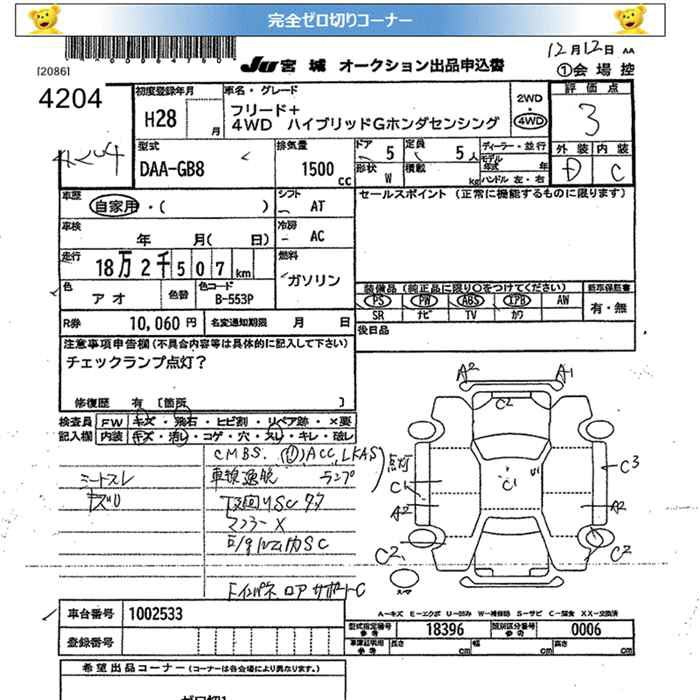 完全ゼロ切りコーナー
[2086]
JU 宮城 オークション出品申込書
12月12日 AA
①会場控
4204
初度登録年月
H28 月
車名・グレード
フリード+
4WD ハイブリッドGホンダセンシング
2WD
4WD
評価点
3
外装 内装
D C
型式
DAA-GB8
排気量
1500 cc
ドア 5
定員 5人
形状 W
積載 kg
ディーラー・並行
モデル年式 年
ハンドル 左・右
車歴
自家用・( )
シフト
AT
セールスポイント (正常に機能するものに限ります)
車検
年 月( 日)
冷房
AC
走行
18万2千507km
燃料
ガソリン
色
アオ
色替
色コード
B-553P
装備品 (純正品に限り○をつけてください)
新車保証書
PS PW ABS エアB AW
有・無
SR ナビ TV カワ
R券 10,060円
名変通知期限 月 日
後日品
注意事項申告欄(不具合内容等は具体的に記入して下さい)
チェックランプ点灯?
修復歴 有 [箇所 ]
検査員 FW キズ・飛石・ヒビ割・リペア跡・×要
記入欄 内装 キズ・汚レ・コゲ・穴・スレ・キレ・破レ
CMBS. (!), ACC, LKAS
点灯
車線逸脱 ランプ
シートスレ
マフラー X
Fインパネ ロアサポートC
A2 A1
C2
C1
C1
C3
A2
A2
C2
C2
スペア
A-キズ E-エクボ U-凹み W-補修跡 S-サビ C-腐食 XX-交換済
車台番号 1002533
登録番号
型式指定番号 参考 18396
類別区分番号 参考 0006
車庫証明用 参考 長さ cm 幅 cm 高さ cm
希望出品コーナー (コーナーは各会場により異なります。)
ゼロ切り